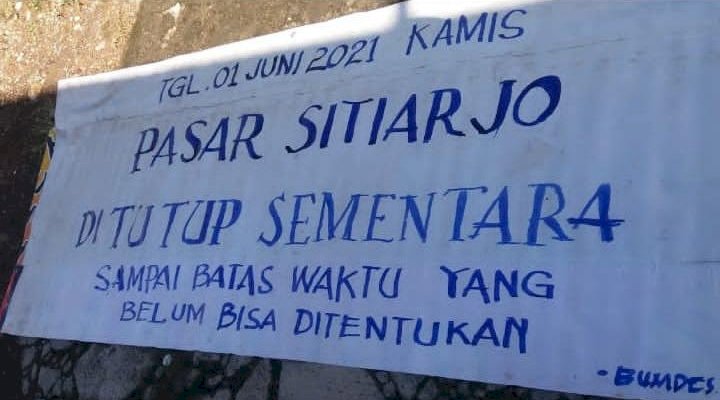 TGL. 01 JUNI 2021 KAMIS
PASAR SITIARJO
DITUTUP SEMENTARA
SAMPAI BATAS WAKTU YANG
BELUM BISA DITENTUKAN
- BUMDES.